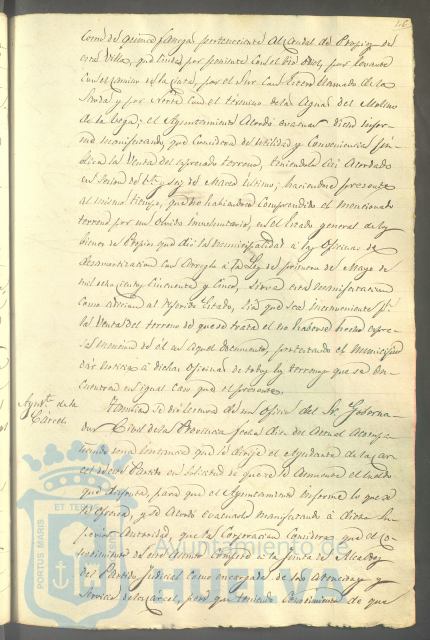 46
como de quince fanegas perteneciente al caudal de Propios de
esta Villa, que linda por poniente con el Rio Odiel, por levante
con el camino de la , por el Sur con Estero llamado de la
 y por Norte con el termino de las Aguas del Molino
de la Vega; el Ayuntamiento Acordó evacuar dicho infor-
me manifestando, que considera de utilidad y conveniencia pú-
blica la Venta del espresado terreno, teniendolo asi Acordado
en sesion de y seis de Marzo último; haciendose presente
al mismo tiempo, que no habiendose comprendido el mencionado
terreno por un olvido involuntario, en el Estado general de los
bienes de Propios que dió la municipalidad a las Oficinas de
desamortizacion con Arreglo a la Ley de primero de Mayo de
mil ochocientos cincuenta y cinco, sirva esta manifestacion
como adicion al referido Estado, sin que sea inconveniente pª
la Venta del terreno de que se trata el no haberse hecho espre-
sa mencion de él en aquel documento, protestando el Municipio
dar noticia a dichas oficinas de todos los terrenos que se en-
cuentran en igual caso que el presente.
Ayudte. de la
Cárcel.
Tambien se dió lectura de un oficio del Sr. Goberna-
dor Civil de la Provincia fecha diez del actual Acompa-
ñando una instancia que le dirije el Ayudante de la Car-
cel de este Partido en solicitud de que se le Aumente el sueldo
que disfruta, para que el Ayuntamiento informe lo que se
le ofrezca, y se Acordó evacuarlo manifestando á dicha Su-
perior Autoridad, que la Corporacion Considera que el co-
nocimiento de este Asunto compete a la Junta de Alcaldes
del Partido Judicial como encargada de las Atenciones y
Servicio de la carcel, pero que teniendo Conocimiento de que
PORTUS MARIS
ET TERRAE
Ayuntamiento de
HUELVA